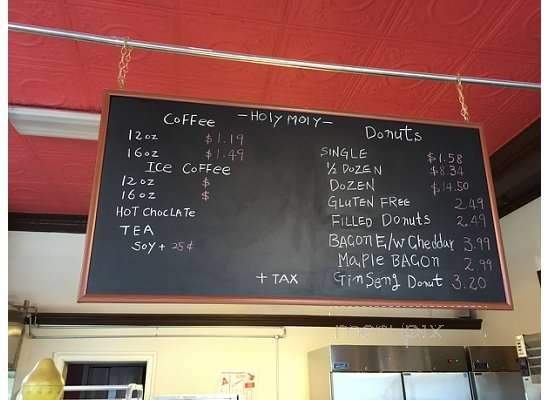 - HOLY MOLY -
Coffee
12 oz $1.19
16 oz $1.49
Ice Coffee
12 oz $
16 oz $
HOT CHOCLATE
TEA
SOY + 25¢
+ TAX
Donuts
SINGLE $1.58
½ DOZEN $8.34
DOZEN $14.50
GLUTEN FREE 2.49
FILLED Donuts 2.49
BACON E/w Cheddar 3.99
MAPLE BACON 2.99
GinSeng Donut 3.20
menupix